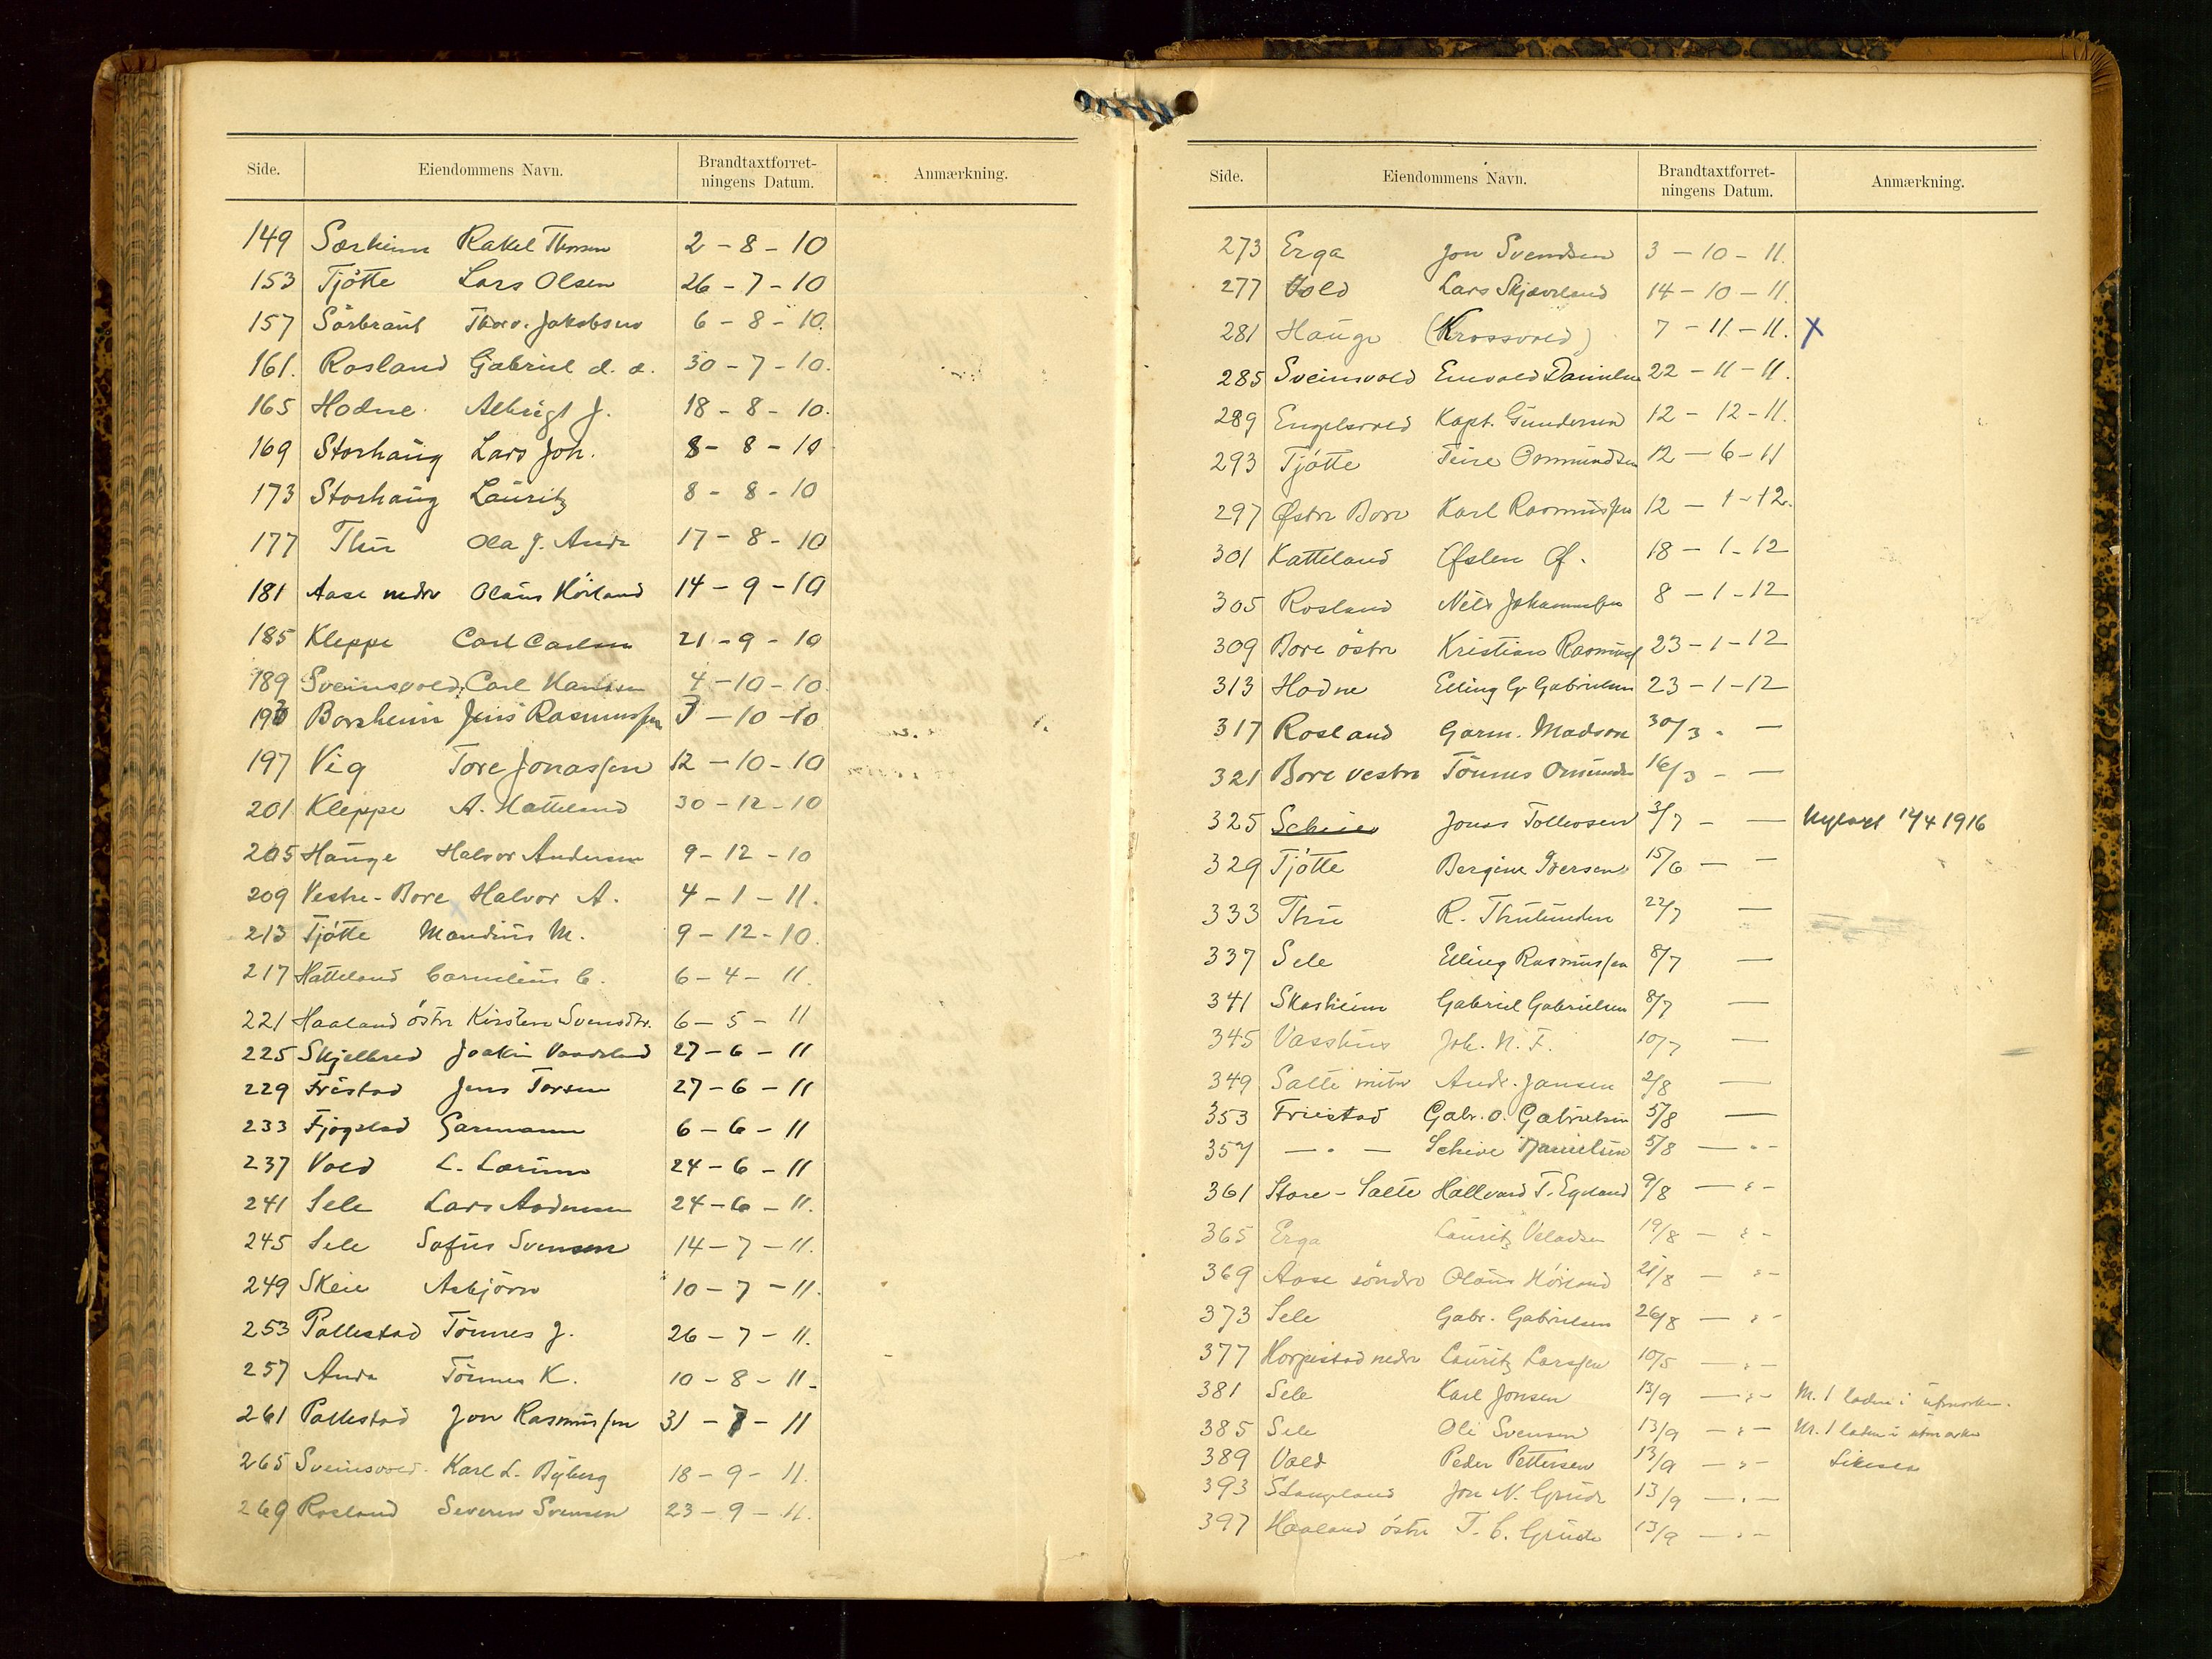 Side. Eiendommens Navn. Brandtaxtforret- ningens Datum. Anmærkning.
149 Særheim Rakel Thorsen 2 - 8 - 10
153 Tjøtte Lars Olsen 26 - 7 - 10
157 Sørbraut Thorv. Jakobsen 6 - 8 - 10.
161. Rosland Gabriel 30 - 7 - 10.
165 Hodne Albrigt J. 18 - 8 - 10.
169 Storhaug Lars Joh. 8 - 8 - 10
173 Storhaug Lauritz 8 - 8 - 10
177 Thu Ola J. Anda 17 - 8 - 10
181 Aase nedre Olaus Høiland 14 - 9 - 10
185 Kleppe Carl Carlsen 21 - 9 - 10
189 Sveinsvold Carl Hansen 4 - 10 - 10
193 Borsheim Jens Rasmussen 3 - 10 - 10
197 Vig Tore Jonassen 12 - 10 - 10
201 Kleppe A. Hatteland 30 - 12 - 10
205 Hauge Halvor Andersen 9 - 12 - 10
209 Vestre-Bore Halvor A. 4 - 1 - 11.
213 Tjøtte Mandius M. 9 - 12 - 10.
217 Hatteland Cornelius C. 6 - 4 - 11.
221 Haaland østre Kirsten Svensdtr. 6 - 5 - 11
225 Skjelbred Joakim 27 - 6 - 11
229 Friestad Jens Torsen 27 - 6 - 11
233 Fjogstad Garmann 6 - 6 - 11
237 Vold L. Laerum 24 - 6 - 11
241 Sele Lars Andersen 24 - 6 - 11.
245 Sele Sofus Svensen 14 - 7 - 11.
249 Skeie Asbjørn 10 - 7 - 11.
253 Pollestad Tønnes J. 26 - 7 - 11.
257 Anda Tønnes K. 10 - 8 - 11.
261 Pollestad Jon Rasmussen 31 - 7 - 11
265 Sveinsvold Karl L. Byberg 18 - 9 - 11.
269 Rosland Severin Svensen 23 - 9 - 11.
Side. Eiendommens Navn. Brandtaxtforret- ningens Datum. Anmærkning.
273 Erga Jon Svendsen 3 - 10 - 11.
277 Vold Lars Skjæveland 14 - 10 - 11.
281 Hauge (Krossvold) 7 - 11 - 11. X
285 Sveinsvold Enevold Danielsen 22 - 11 - 11.
289 Engelsvold Kapt. Gundersen 12 - 12 - 11.
293 Tjøtte Omundsen 12 - 6 - 11
297 Østre Bore Karl Rasmussen 12 - 1 - 12.
301 Katteland 18 - 1 - 12
305 Rosland Nils Johannessen 8 - 1 - 12
309 Bore østre Kristian Rasmuss 23 - 1 - 12
313 Hodne Elling G. Gabrielsen 23 - 1 - 12
317 Rosland Garm. Madson 30/3 - —
321 Bore vestre Tønnes Omundsen 16/3 - —
325 Scheie Jonas Tollevsen 3/7 - — Nytaxt 19/4 1916
329 Tjøtte Bergine Iversen 15/6 — —
333 Thu R. Thulunden 22/7 —
337 Sele Elling Rasmussen 8/7 —
341 Skasheim Gabriel Gabrielsen 8/7 —
345 Vasshus Joh. N. F. 10/7 —
349 Salte mitre Andr. Jansen 2/8 —
353 Friestad Gabr. O. Gabrielsen 5/8 —
357 — " — Scheie Danielsen 5/8 — " -
361 Store-Salte Hallvard T. Egeland 9/8 — " -
365 Erga Lauritz Veladsen 19/8 — " -
369 Aase søndre Olaus Høiland 21/8 — " -
373 Sele Gabr. Gabrielsen 26/8 — " -
377 Horpestad nedre Lauritz Larssen 10/5 — " -
381 Sele Karl Jonsen 13/9 — " - M. 1 laden i utmarken.
385 Sele Ole Svensen 13/9 — " - M. 1 laden i utmarken
389 Vold Peder Pettersen 13/9 — " - Likesaa
393 Stangeland Jon N. Grude 13/9 — " -
397 Haaland østre T. C. Grude 13/9 — " -